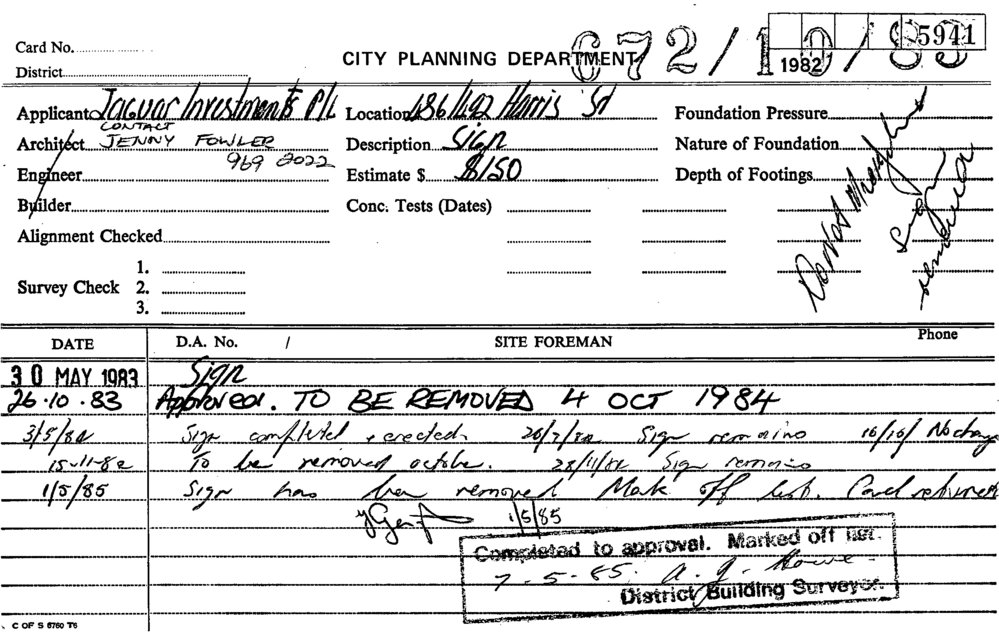 672/10/83
5941
1982
Card No.
CITY PLANNING DEPARTMENT
District
Applicant Jaguar Investments P/L Location 486/492 Harris St Foundation Pressure
CONTACT
Architect JENNY FOWLER Description Sign Nature of Foundation
969 2022
Engineer Estimate $ $150 Depth of Footings
Builder Conc. Tests (Dates)
Alignment Checked
Survey Check 1.
2.
3.
Do Not
Sign
DATE D.A. No. / SITE FOREMAN Phone
30 MAY 1983 Sign
26.10.83 Approved. TO BE REMOVED 4 OCT 1984
3/5/84 Sign completed + erected. Sign remains 16/10/ No change
15-11-82 To be removed october. Sign remains
1/5/85 Sign has been removed Mark off list. Card returned
1/5/85
Completed to approval. Marked off list.
7-5-85. A. J. Howe
District Building Surveyor.
C OF S 6760 T6